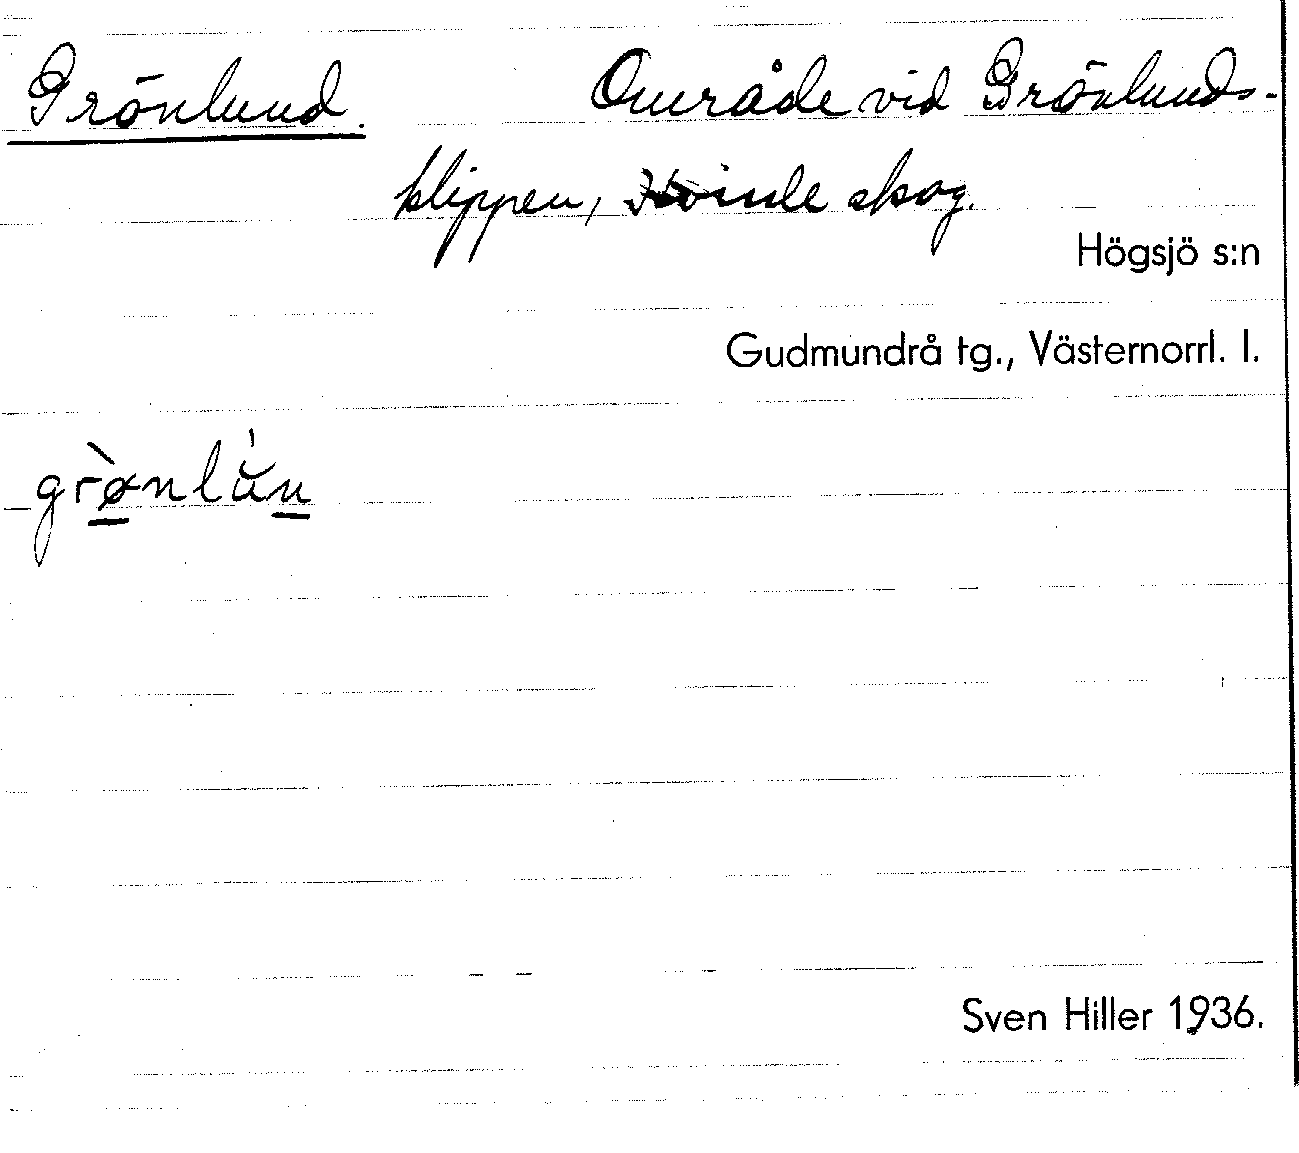 Grönlund. Område vid Grönlunds-
klippen, skog.
Högsjö s:n
Gudmundrå tg., Västernorrl. l.
grø̀nlu̇n
Sven Hiller 1936.